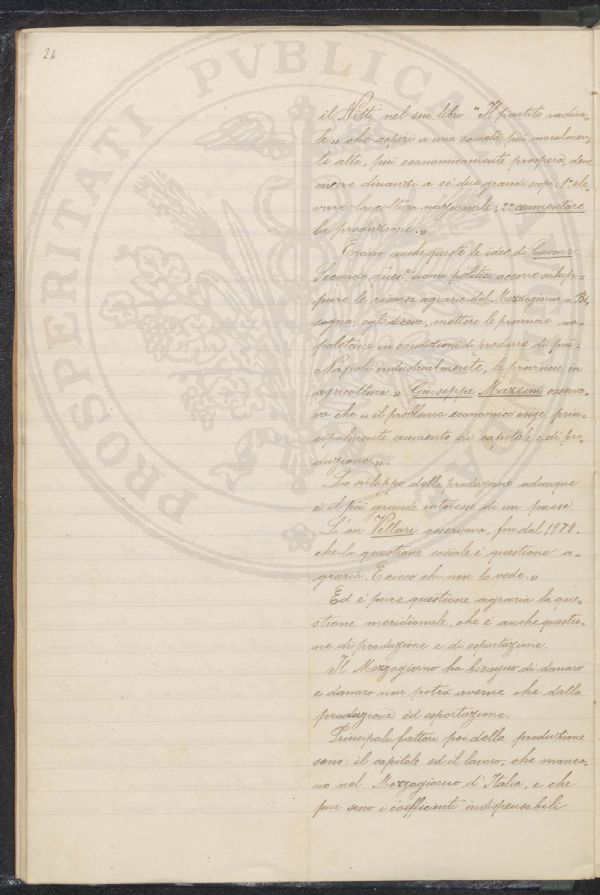 24
PROSPERITATI PVBLICAE
il Nitti nel suo libro "Il partito radica-
le" che aspiri a una società più moralmen-
te alta, più economicamente prospera, deve
avere dinanzi a sè due grandi scopi: 1° ele-
vare la coltura nazionale; 2° aumentare
la produzione.»
Erano anche giuste le idee di Cavour.
Secondo quest'uomo politico occorre svilup-
pare le risorse agrarie del Mezzogiorno. « Bi-
sogna, egli diceva, mettere le provincie na-
poletane in condizioni di produrre di più:
Napoli industrialmente, le provincie in
agricoltura.» Giuseppe Mazzini osserva-
va che « il problema economico esige prin-
cipalmente aumento di capitale e di pro-
duzione.».
Lo sviluppo della produzione adunque
è il più grande interesse di un paese.
L'on. Villari osservava, fin dal 1878.
che la questione sociale è questione a-
graria. È cieco chi non lo vede.»
Ed è pure questione agraria la que-
stione meridionale, che è anche questio-
ne di produzione e di esportazione.
Il Mezzogiorno ha bisogno di danaro
e danaro non potrà averne che dalla
produzione ed esportazione.
Principali fattori poi della produzione
sono: il capitale ed il lavoro, che manca-
no nel Mezzogiorno d'Italia, e che
pur sono i coefficienti indispensabili